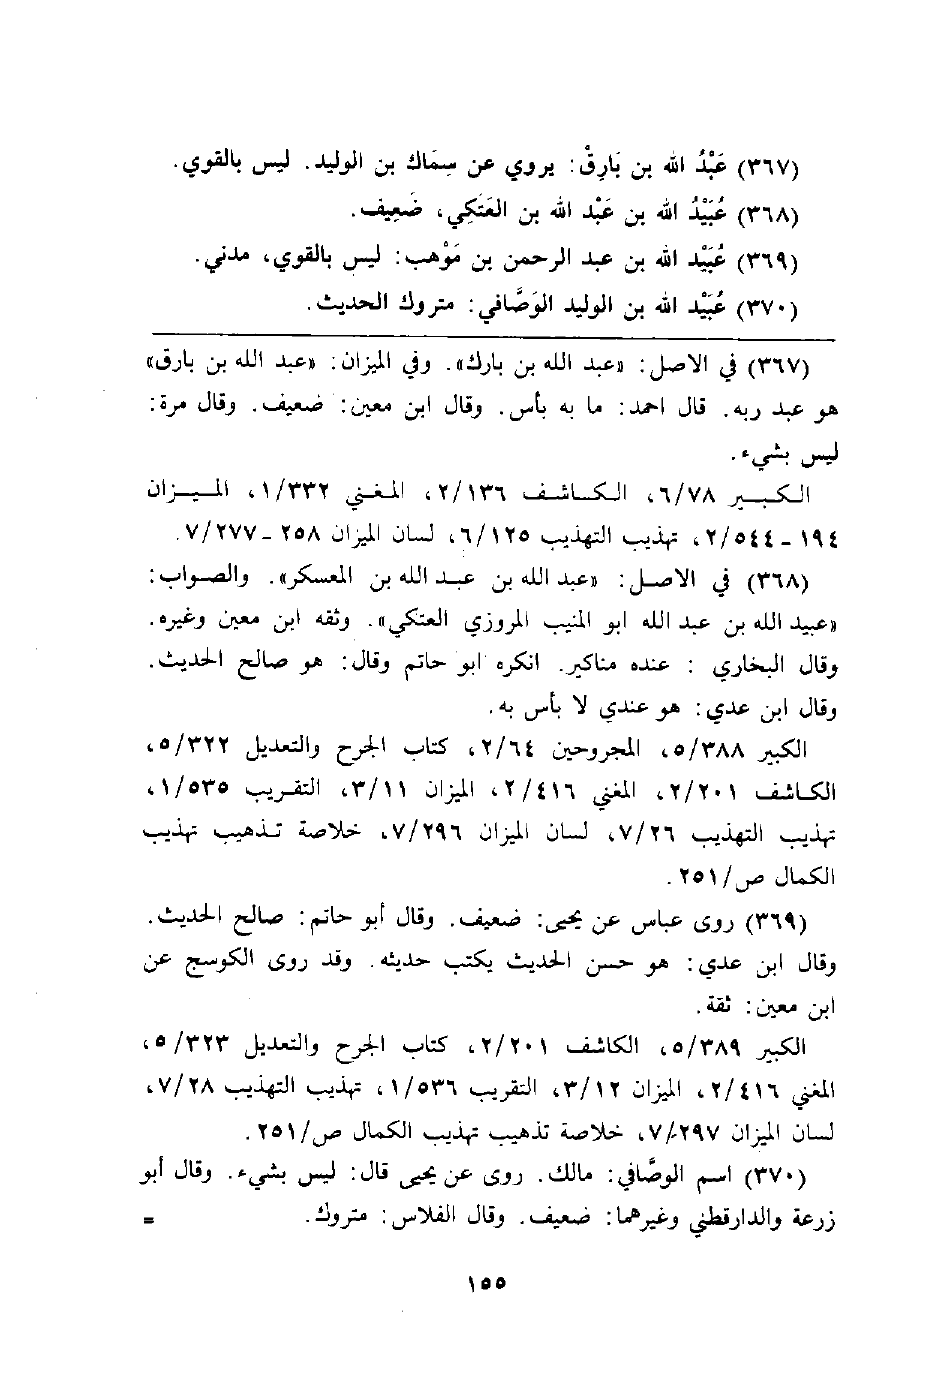 (٣٦٧) عَبْدُ الله بن بَارِقْ: يروي عن سِمَاك بن الوليد. ليس بالقوي.
(٣٦٨) عُبَيْدُ الله بن عَبْد الله بن العَتَكِي، ضَعِيف.
(٣٦٩) عُبَيْد الله بن عبد الرحمن بن مَوْهب: ليس بالقوي، مدني.
(٣٧٠) عُبَيْد الله بن الوليد الوَصَّافي: متروك الحديث.
(٣٦٧) في الاصل: «عبد الله بن بارك». وفي الميزان: «عبد الله بن بارق»
هو عبد ربه. قال احمد: ما به بأس. وقال ابن معين: ضعيف. وقال مرة:
ليس بشيء.
الكبير ٦/٧٨، الكاشف ٢/١٣٦، المغني ١/٣٣٢، الميزان
١٩٤ - ٢/٥٤٤، تهذيب التهذيب ٦/١٢٥، لسان الميزان ٢٥٨ - ٧/٢٧٧.
(٣٦٨) في الاصل: «عبد الله بن عبد الله بن المعسكر». والصواب:
«عبيد الله بن عبد الله ابو المنيب المروزي العتكي». وثقه ابن معين وغيره.
وقال البخاري : عنده مناكير. انكره ابو حاتم وقال: هو صالح الحديث.
وقال ابن عدي: هو عندي لا بأس به.
الكبير ٥/٣٨٨، المجروحين ٢/٦٤، كتاب الجرح والتعديل ٥/٣٢٢،
الكاشف ٢/٢٠١، المغني ٢/٤١٦، الميزان ٣/١١، التقريب ١/٥٣٥،
تهذيب التهذيب ٧/٢٦، لسان الميزان ٧/٢٩٦، خلاصة تذهيب تهذيب
الكمال ص/٢٥١.
(٣٦٩) روى عباس عن يحيى: ضعيف. وقال أبو حاتم: صالح الحديث.
وقال ابن عدي: هو حسن الحديث يكتب حديثه. وقد روى الكوسج عن
ابن معين: ثقة.
الكبير ٥/٣٨٩، الكاشف ٢/٢٠١، كتاب الجرح والتعديل ٥/٣٢٣،
المغني ٢/٤١٦، الميزان ٣/١٢، التقريب ١/٥٣٦، تهذيب التهذيب ٧/٢٨،
لسان الميزان ٧/٢٩٧، خلاصة تذهيب تهذيب الكمال ص/٢٥١.
(٣٧٠) اسم الوصَّافي: مالك. روى عن يحيى قال: ليس بشيء. وقال أبو
زرعة والدارقطني وغيرهما: ضعيف. وقال الفلاس: متروك. =
١٥٥